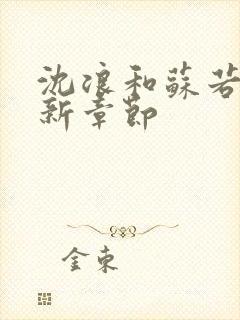 沈浪和蘇若
新章節
金東